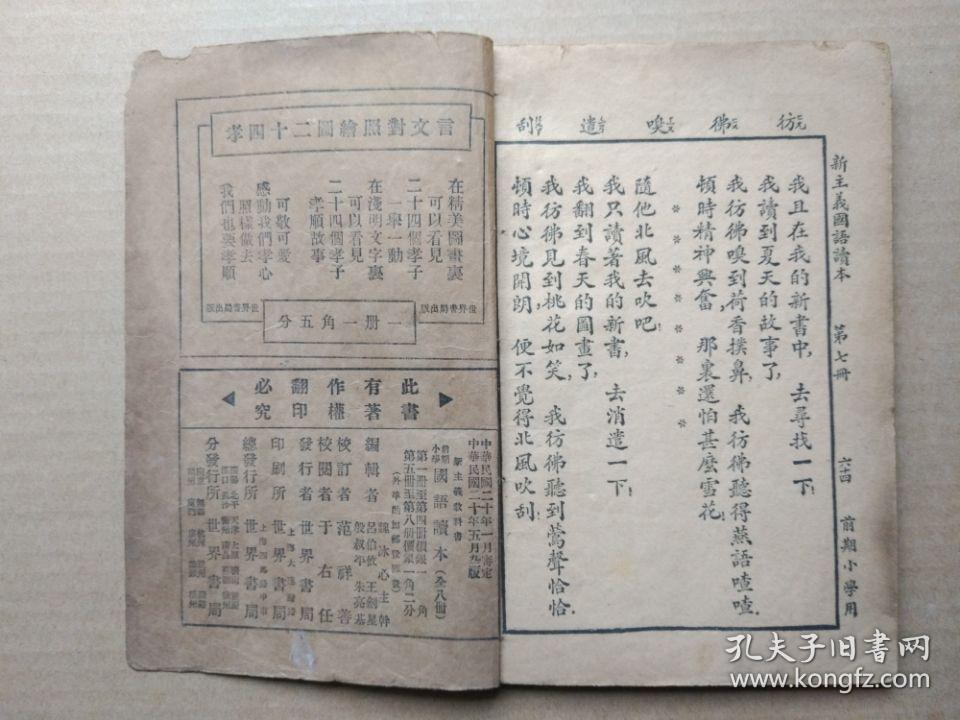 彷 彿 嗅 遣 刮
我且在我的新書中，去尋找一下，
我讀到夏天的故事了，
我彷彿嗅到荷香撲鼻，我彷彿聽得燕語喳喳，
頓時精神興奮 那裏還怕甚麼雪花，
＊＊＊＊＊＊
隨他北風去吹吧，
我只讀著我的新書，去消遣一下，
我翻到春天的圖畫了，
我彷彿見到桃花如笑，我彷彿聽到鶯聲恰恰，
頓時心境開朗 便不覺得北風吹刮，
新主義國語讀本 第七冊 六十四 前期小學用
言文對照繪圖二十四孝
在精美圖畫裏
可以看見
二十四個孝子
一舉一動
在淺明文字裏
可以看見
二十四個孝子
孝順故事
可敬可愛
感動我們孝心
照樣做去
我們也要孝順
世界書局出版
世界書局出版
一冊一角五分
此書
有著
作權
翻印
必究
中華民國二十年一月
中華民國二十年五月
新主義教科書
前期小學 國語讀本（全八冊）
第一冊至第四冊價銀一角
第五冊至第八冊價銀一角二分
編輯者 魏冰心主幹 呂伯攸 王劍星 殷叔平 朱亮基
校訂者 范祥善
校閱者 于右任
發行者 世界書局
印刷所 世界書局
總發行所 世界書局
分發行所 世界書局
孔夫子旧书网
www.kongfz.com